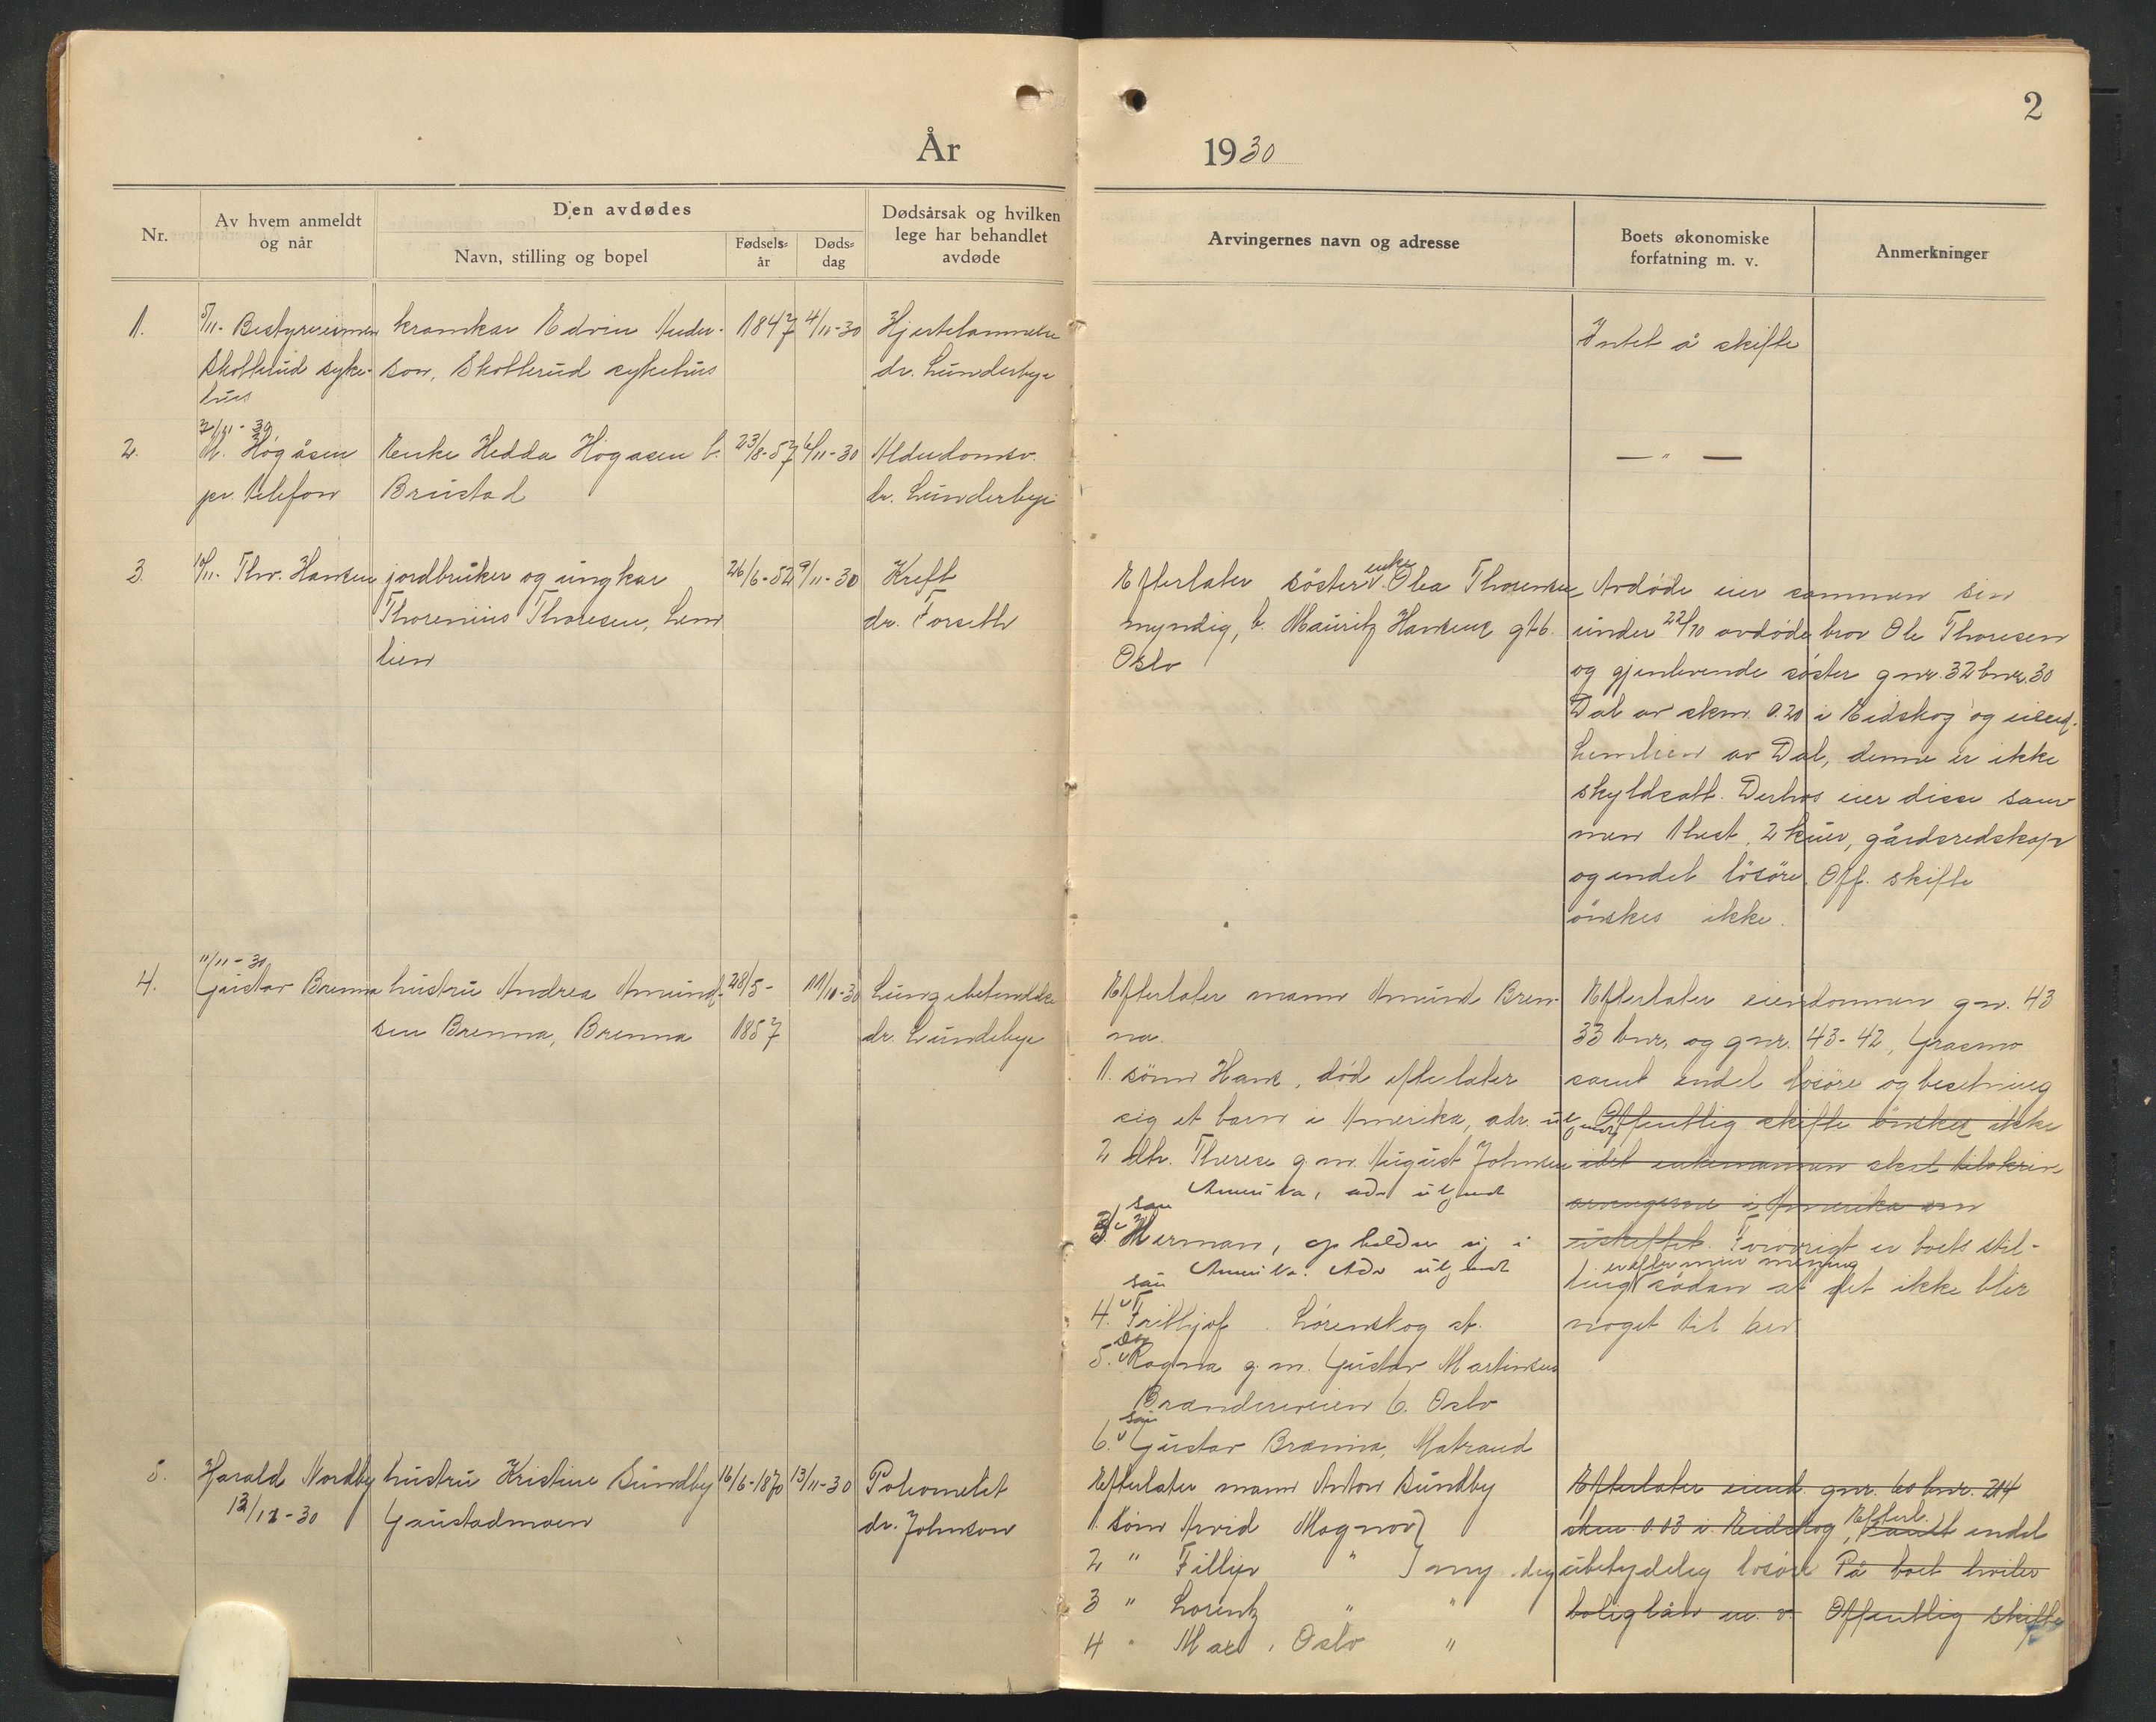 2
År 1930
Nr.
Av hvem anmeldt
og når
Den avdødes
Navn, stilling og bopel
Fødsels-
år
Døds-
dag
Dødsårsak og hvilken
lege har behandlet
avdøde
Arvingernes navn og adresse
Boets økonomiske
forfatning m. v.
Anmerkninger
1.
5/11- Bestyrerinnen
Skotterud syke-
hus
kramkar Edvin Ander-
son, Skotterud sykehus
1847
4/11-30
Hjertelammelse
dr. Lunderbye
Intet å skifte
2.
7/11-30
M. Høgåsen
pr. telefon
Enke Hedda Høgasen b.
Brustad
23/8-57
6/11-30
Alderdomsv.
dr. Lunderbye
— " —
3.
10/11. Thv. Hansen
jordbruker og ungkar
Thorenius Thoresen, Lem
lien
26/6-52
9/11-30
Kreft
dr. Forseth
Efterlater søster enke Olea Thoresen
myndig, b. Mauritz Hansens gt 6.
Oslo
Avdøde eier sammen sin
under 22/10 avdøde bror Ole Thoresen
og gjenlevende søster gnr. 32 bnr. 30
Dal av skm. 0.20 i Eidskog og eiend.
Lemlien av Dal, denne er ikke
skyldsatt. Derhos eier disse sam
men 1 hest, 2 kuer, gårdsredskap
og endel løsøre. Off. skifte
ønskes ikke.
4.
11/11-30
Gustav Brenna
hustru Andrea Amund-
sen Brenna, Brenna
28/5-
1857
11/11-30
Lungebetendelse
dr. Lundebye
Efterlater mann Amund Bren-
na.
1. sønn Hans, død efterlater
sig et barn i Amerika, adr. ukjendt
2 dtr. Therese g. m. August Johnsen
Amerika, adr ukjendt
3. søn Herman, opholder sig i
Amerika. Adr ukjendt
4. søn Frithjof. Lørenskog st.
5. dtr Ragna g. m. Gustav Martinsen
Branderveien 6. Oslo
6. søn Gustav Brenna, Matrand
Efterlater eiendommen gnr. 43
33 bnr. og gnr. 43-42, Grasmo
samt endel løsøre og besetning
Offentlig skifte ønskes ikke
idet enkemannen skal tilskrive
arvingerne i Amerika om
uskiftet. Forøvrigt er boets stil-
ling er efter min mening sådan at det ikke blir
noget til arv
5.
Harald Nordby
13/11-30
hustru Kristine Sundby
Gaustadmoen
16/6-1870
13/11-30
dr. Johnson
Efterlater mann Anton Sundby
1. søn Arvid Magnor
2 " Fillip " } myndig
3 " Lorentz " "
4 " Oslo "
Efterlater eiend. gnr. 60 bnr. 214
skm. 0.03 i Eidskog, Efterl. samt endel
ubetydelig løsøre På boet hviler
boliglån m. v. Offentlig skifte